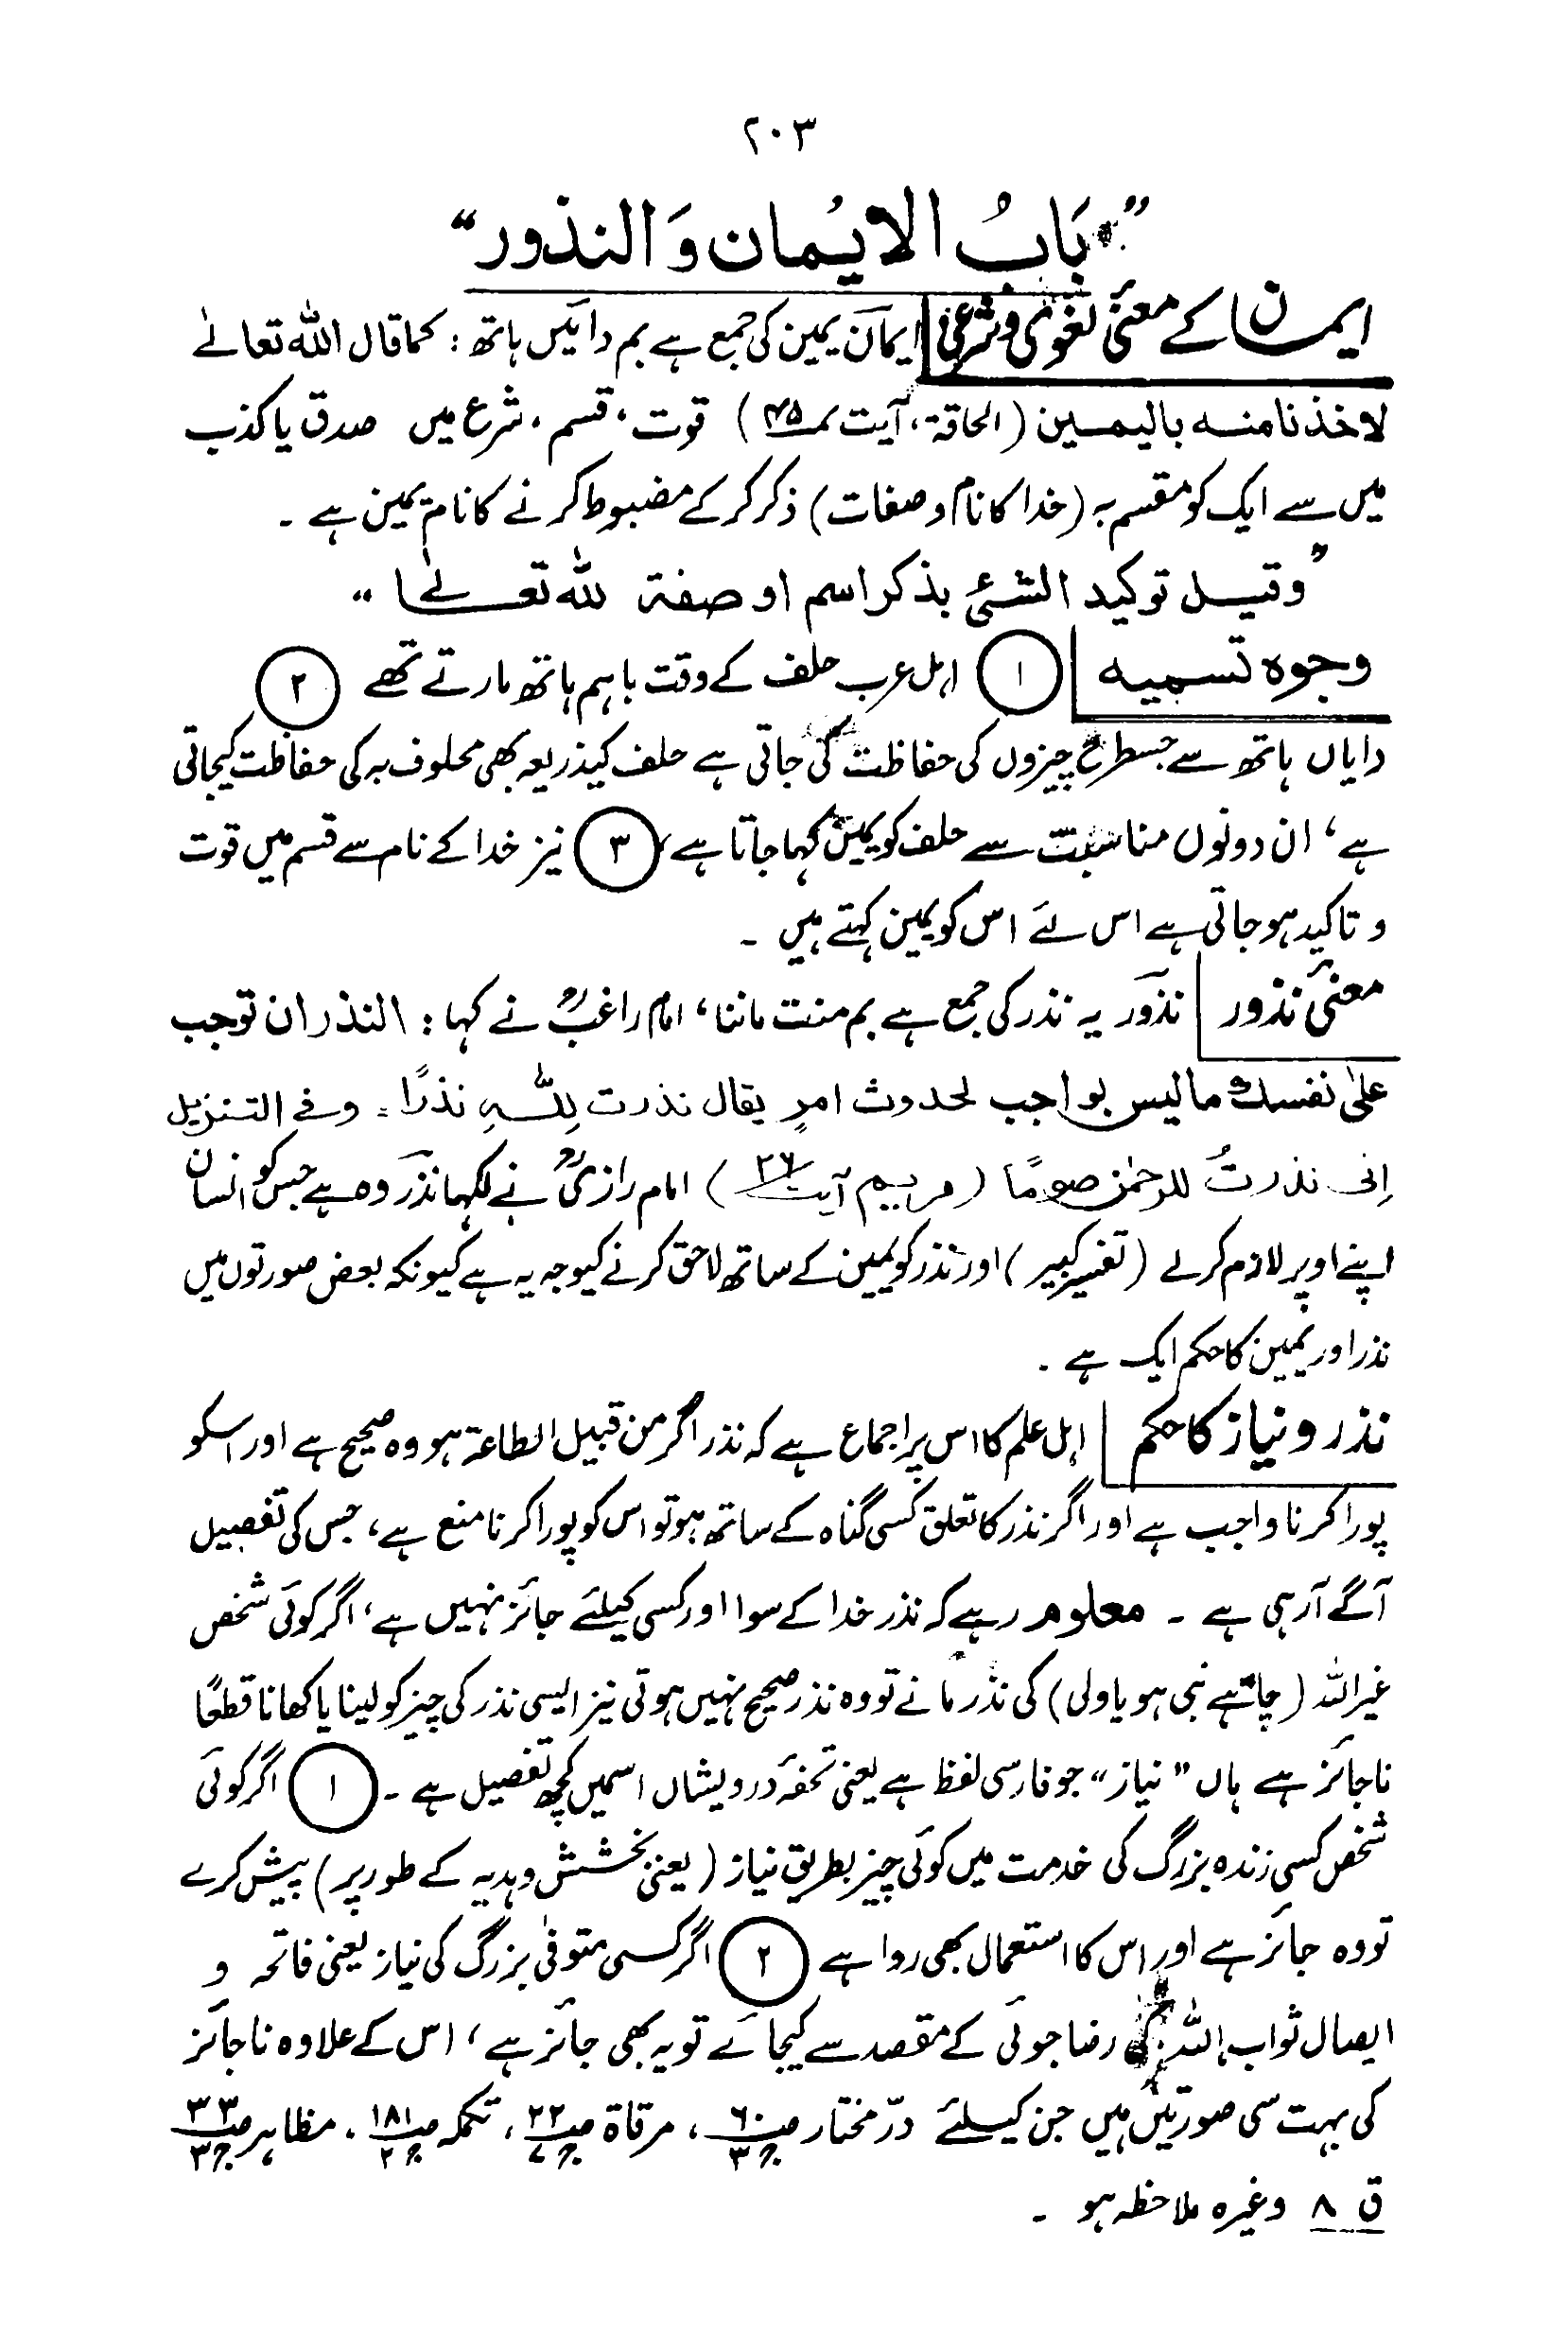 ۲۰۳
”بَابُ الایُمان وَالنذور“
ایمان کے معنیٔ لغوی وشرعی ایمان یمین کی جمع ہے بم دائیں ہاتھ : کما قال اللہ تعالےٰ
لاخذنا منہ بالیمین (الحاقة، آیت ۴۵) قوت، قسم، شرع میں صدق یا کذب
میں سے ایک کو مقسم بہ (خدا کا نام وصفات) ذکر کرکے مضبوط کرنے کا نام یمین ہے ۔
”وقیل توکید الشئی بذکر اسم او صفة للہ تعالےٰ“
وجوہ تسمیہ ۱ اہل عرب حلف کے وقت باہم ہاتھ مارتے تھے ۲
دایاں ہاتھ سے جسطرح چیزوں کی حفاظت کی جاتی ہے حلف کیذریعہ بھی محلوف بہ کی حفاظت کیجاتی
ہے، ان دونوں مناسبت سے حلف کو یمین کہا جاتا ہے، ۳ نیز خدا کے نام سے قسم میں قوت
و تاکید ہوجاتی ہے اس لئے اس کو یمین کہتے ہیں ۔
معنیٔ نذور نذور یہ نذر کی جمع ہے بم منت ماننا، امام راغبؒ نے کہا : النذر ان توجب
علی نفسك ما لیس بواجب لحدوث امرٍ یقال نذرت لِلّٰہِ نذرًا ۔ وفے التنزیل
اِنی نذرتُ للرحمٰن صومًا (مریم آیت ۲۶) امام رازیؒ نے لکھا نذر وہ ہے جس کو انسان
اپنے اوپر لازم کرلے (تفسیر کبیر) اور نذر کو یمین کے ساتھ لاحق کرنے کیوجہ یہ ہے کیونکہ بعض صورتوں میں
نذر اور یمین کا حکم ایک ہے ۔
نذر ونیاز کا حکم اہل علم کا اس پر اجماع ہے کہ نذر اگر من قبیل الطاعة ہو وہ صحیح ہے اور اسکو
پورا کرنا واجب ہے اور اگر نذر کا تعلق کسی گناہ کے ساتھ ہو تو اس کو پورا کرنا منع ہے، جس کی تفصیل
آگے آرہی ہے ۔ معلوم رہے کہ نذر خدا کے سوا اور کسی کیلئے جائز نہیں ہے، اگر کوئی شخص
غیر اللہ (چاہے نبی ہو یا ولی) کی نذر مانے تو وہ نذر صحیح نہیں ہوتی نیز ایسی نذر کی چیز کو لینا یا کھانا قطعًا
ناجائز ہے ہاں ”نیاز“ جو فارسی لفظ ہے یعنی تحفۂ درویشاں اسمیں کچھ تفصیل ہے ۔ ۱ اگر کوئی
شخص کسی زندہ بزرگ کی خدمت میں کوئی چیز بطریق نیاز (یعنی بخشش وہدیہ کے طور پر) پیش کرے
تو وہ جائز ہے اور اس کا استعمال بھی روا ہے ۲ اگر کسی متوفیٰ بزرگ کی نیاز یعنی فاتحہ و
ایصال ثواب اللہ کی رضا جوئی کے مقصد سے کیجائے تو یہ بھی جائز ہے، اس کے علاوہ ناجائز
کی بہت سی صورتیں ہیں جن کیلئے درّ مختار ص۶۰ ج۳، مرقاة ص۲۲ ج۷، تکملہ ص۱۸۱ ج۲، مظاہر ص۳۳ ج۳
ق ۸ وغیرہ ملاحظہ ہو ۔